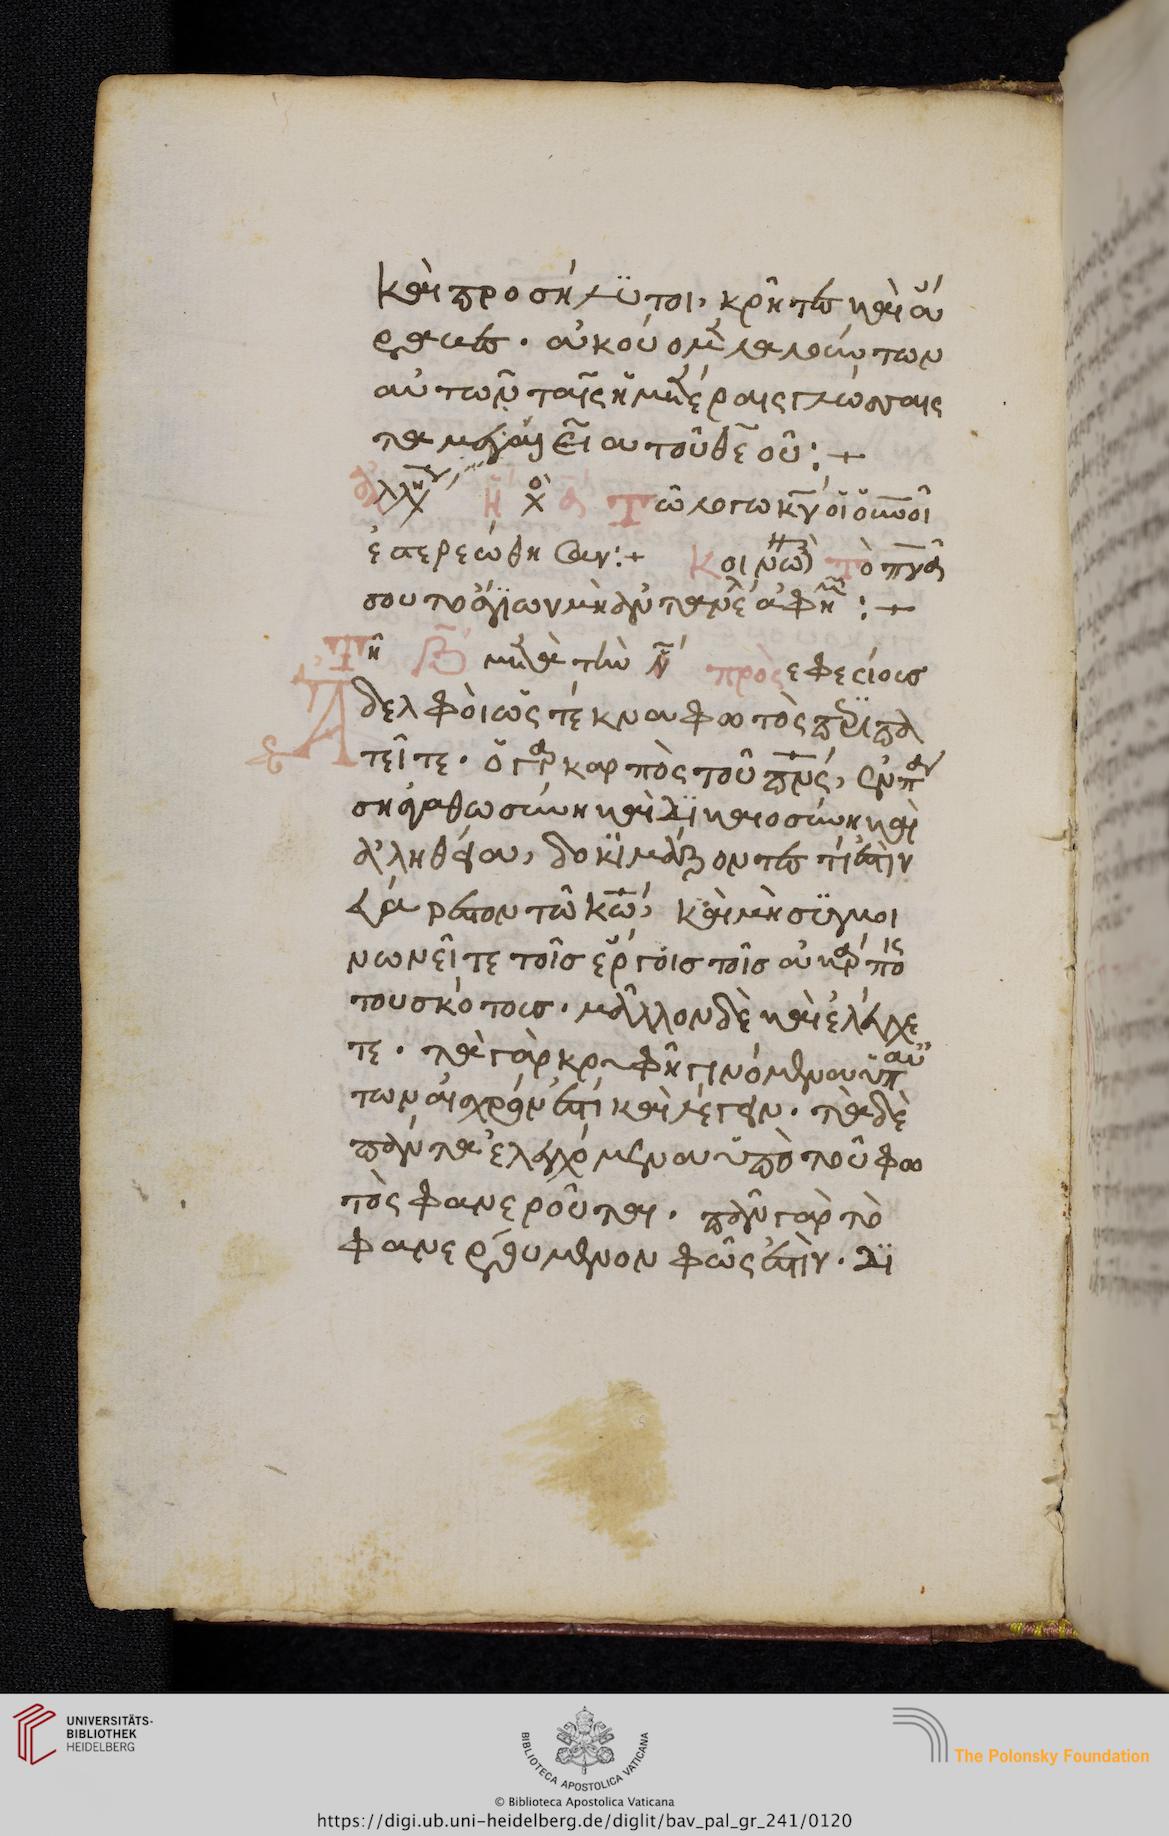 Καὶ προσήλϋτοι, κρῆτες καὶ ἄ
ραβες· ἀκούομεν λαλούντων
αὐτῶν ταῖς ἡμετέραις γλώσσαις
τὰ μεγαλεῖα τοῦ θεοῦ:+
Τῶ λόγω κυ οἱ οὐνοὶ
ἐστερεώθησαν:+ Κοινων Τὸ πνα
σου τὸ ἅγϊον μὴ ἀντανέλ ἀφ ημ:+
Τῆ μετὰ τὴν ν πρὸς ἐφεσίους
Ἀδελφοὶ ὡς τέκνα φωτὸς περϊπα
τεῖτε· ὁ γὰρ καρπὸς τοῦ πνς, ἐν πα
ση ἀγαθωσύνη καὶ δϊκαιοσύνη καὶ
ἀληθεία, δοκϊμάζοντες τί ἐστιν
εὐάρεστον τῶ κω, Καὶ μὴ σϋγκοι
νωνεῖτε τοῖς ἔργοις τοῖς ἀκάρποις
του σκότους· μᾶλλον δὲ καὶ ἐλέγχε
τε· τὰ γὰρ κρυφῆ γινόμενα ὑπ αὐ
τῶν αἰσχρόν ἐστι καὶ λέγειν· τὰ δὲ
πάντα ἐλεγχόμενα ὑπὸ τοῦ φω
τὸς φανεροῦται· πᾶν γὰρ τὸ
φανερούμενον φῶς ἐστὶν· δϊ
UNIVERSITÄTS-
BIBLIOTHEK
HEIDELBERG
BIBLIOTECA APOSTOLICA VATICANA
The Polonsky Foundation
© Biblioteca Apostolica Vaticana
https://digi.ub.uni-heidelberg.de/diglit/bav_pal_gr_241/0120